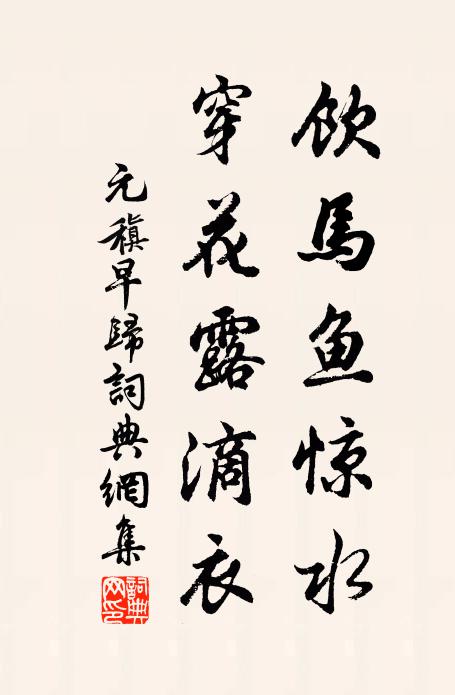 飲馬鱼惊水
穿花露滴衣
元稹早歸詞典網集
詞典网印